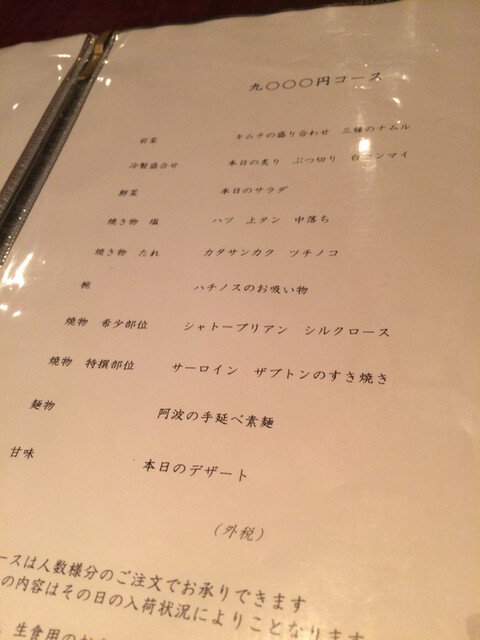 九〇〇〇円コース
前菜 キムチの盛り合わせ 三種のナムル
冷製盛合せ 本日の炙り ぶつ切り 白センマイ
鮮菜 本日のサラダ
焼き物 塩 ハツ 上タン 中落ち
焼き物 たれ カタサンカク ツチノコ
椀 ハチノスのお吸い物
焼物 希少部位 シャトーブリアン シルクロース
焼物 特撰部位 サーロイン ザブトンのすき焼き
麺物 阿波の手延べ素麺
甘味 本日のデザート
(外税)
ースは人数様分のご注文でお承りできます
の内容はその日の入荷状況によりことなります
生食用の